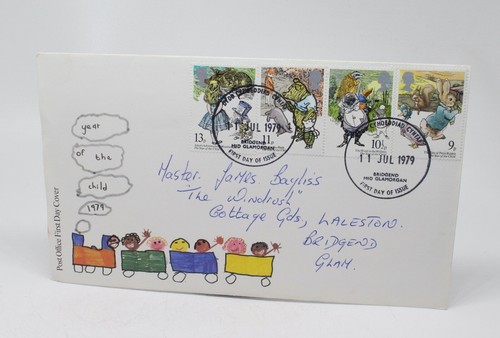 year
of the
child
1979
Post Office First Day Cover
13p
11p
10½p
9p
11 JUL 1979
BRIDGEND
MID GLAMORGAN
FIRST DAY OF ISSUE
11 JUL 1979
BRIDGEND
MID GLAMORGAN
FIRST DAY OF ISSUE
Master. James. Bayliss
"The Windrush"
Cottage Gds, LALESTON.
BRIDGEND
GLAM.